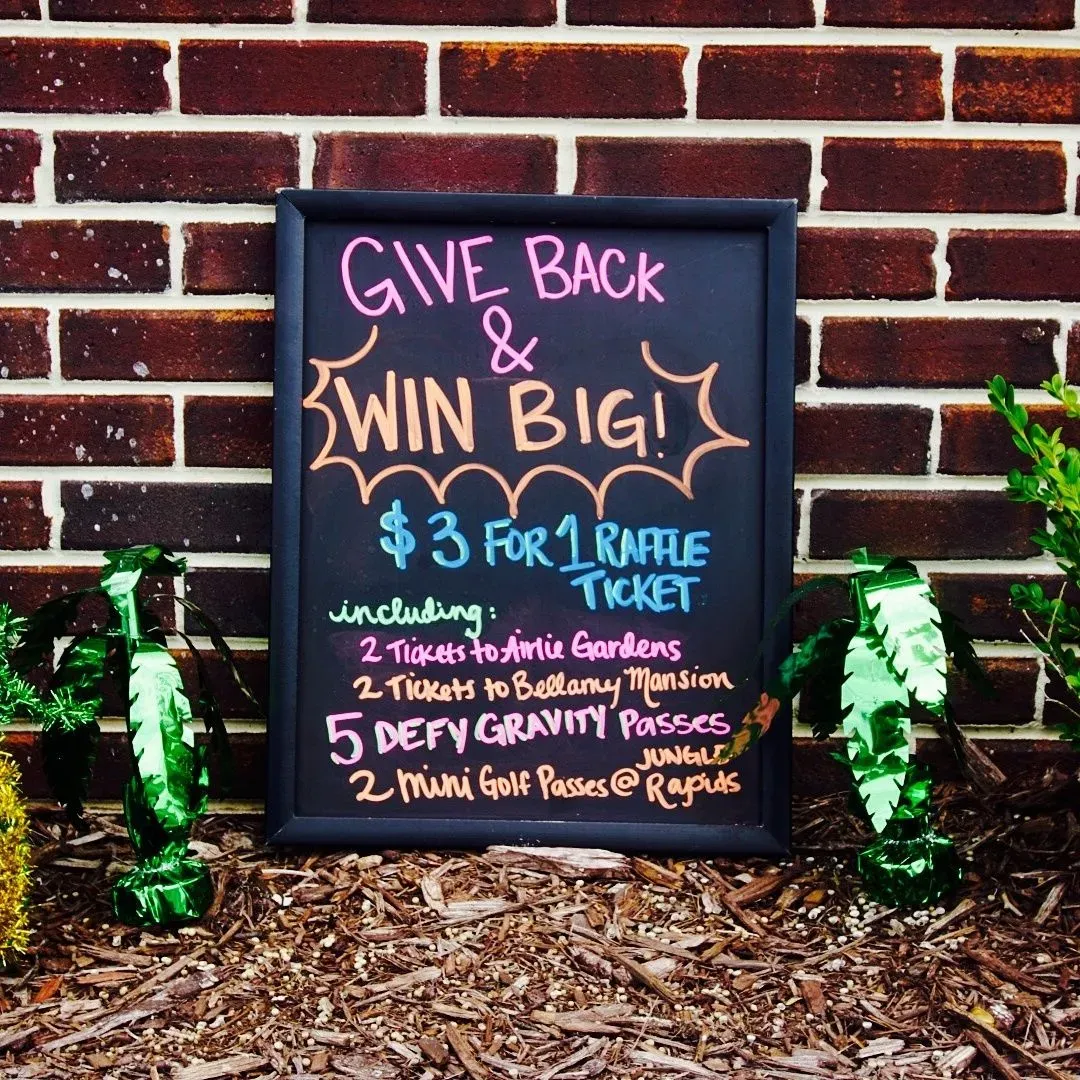 GIVE BACK
&
WIN BIG!
$3 FOR 1 RAFFLE
TICKET
including:
2 Tickets to Airlie Gardens
2 Tickets to Bellamy Mansion
5 DEFY GRAVITY Passes
2 mini Golf Passes @ JUNGLE
Rapids